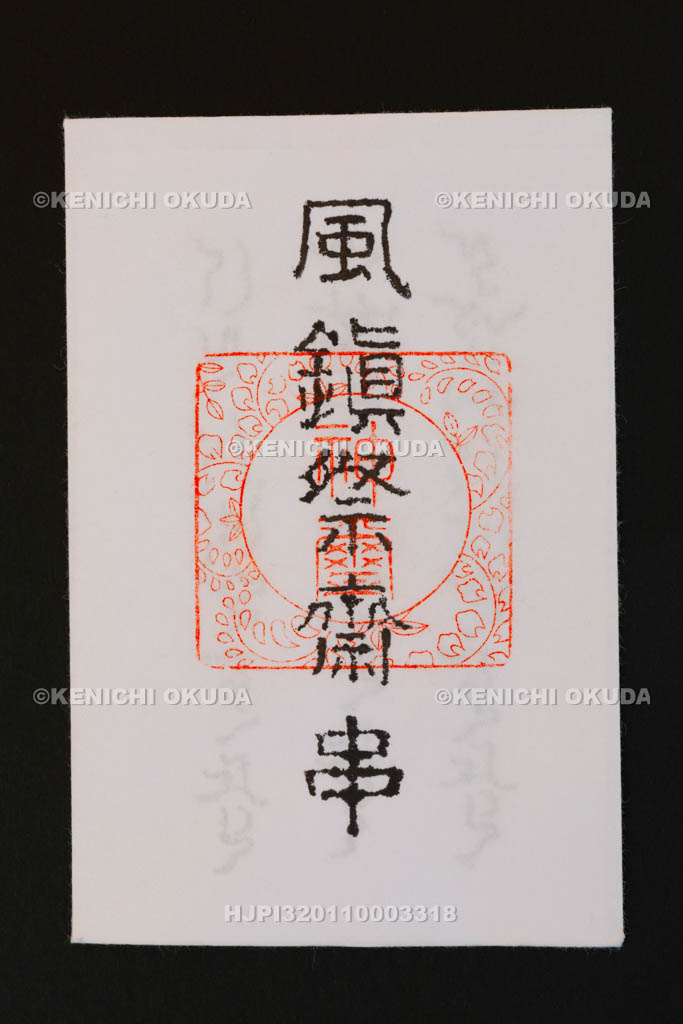 ©KENICHI OKUDA
©KENICHI OKUDA
風鎭祭齋串
©KENICHI OKUDA
神璽
©KENICHI OKUDA
©KENICHI OKUDA
HJPI320110003318